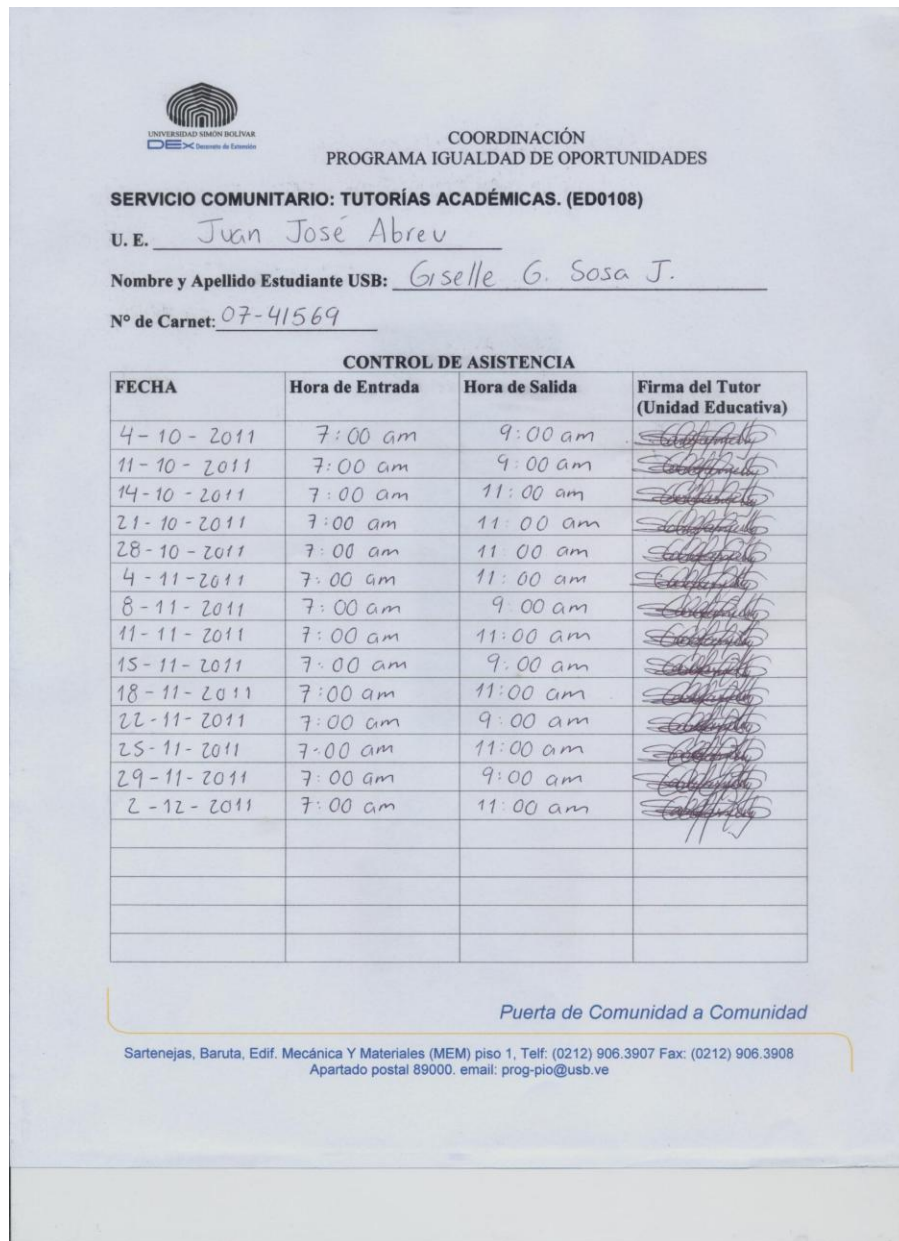 UNIVERSIDAD SIMÓN BOLÍVAR
DEX Decanato de Extensión
COORDINACIÓN
PROGRAMA IGUALDAD DE OPORTUNIDADES
SERVICIO COMUNITARIO: TUTORÍAS ACADÉMICAS. (ED0108)
U. E. Juan José Abreu
Nombre y Apellido Estudiante USB: Giselle G. Sosa J.
Nº de Carnet: 07-41569
CONTROL DE ASISTENCIA
FECHA Hora de Entrada Hora de Salida Firma del Tutor (Unidad Educativa)
4-10-2011 7:00 am 9:00 am
11-10-2011 7:00 am 9:00 am
14-10-2011 7:00 am 11:00 am
21-10-2011 7:00 am 11:00 am
28-10-2011 7:00 am 11:00 am
4-11-2011 7:00 am 11:00 am
8-11-2011 7:00 am 9:00 am
11-11-2011 7:00 am 11:00 am
15-11-2011 7:00 am 9:00 am
18-11-2011 7:00 am 11:00 am
22-11-2011 7:00 am 9:00 am
25-11-2011 7:00 am 11:00 am
29-11-2011 7:00 am 9:00 am
2-12-2011 7:00 am 11:00 am
Puerta de Comunidad a Comunidad
Sartenejas, Baruta, Edif. Mecánica Y Materiales (MEM) piso 1, Telf: (0212) 906.3907 Fax: (0212) 906.3908
Apartado postal 89000. email: prog-pio@usb.ve